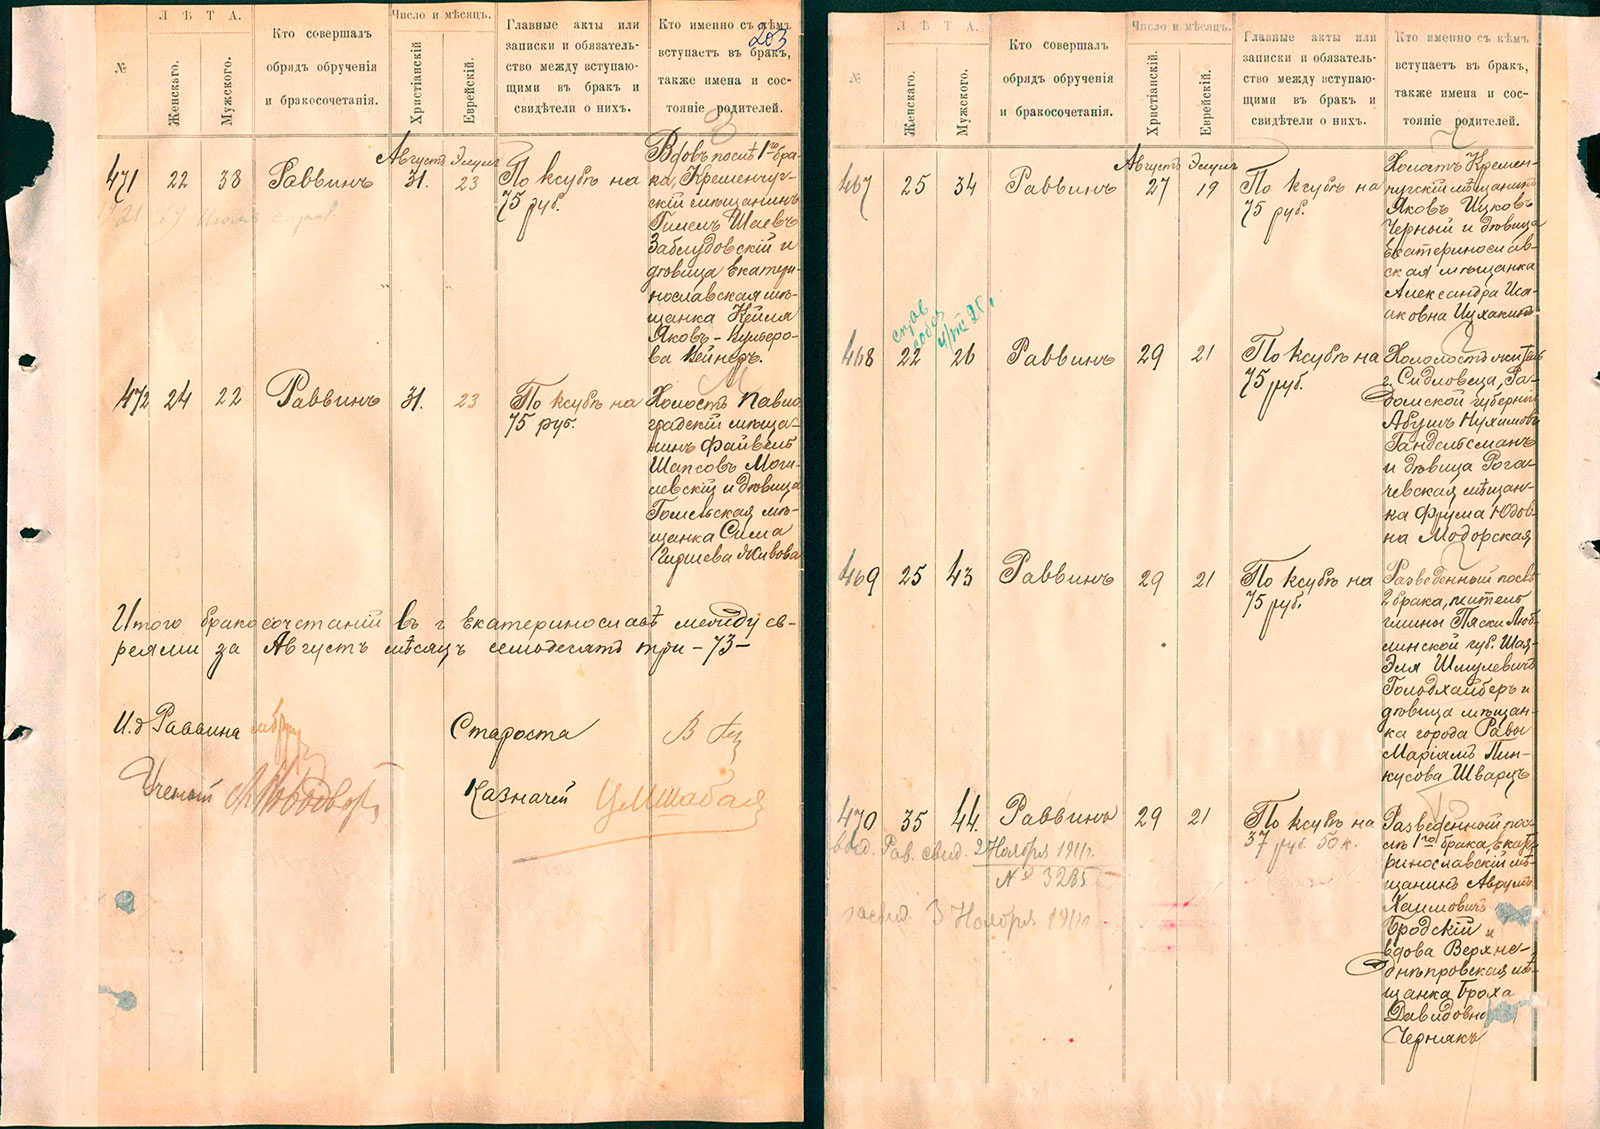 203
Л Ѣ Т А.
Число и мѣсяцъ.
№
Женскаго.
Мужского.
Кто совершалъ
обрядъ обрученія
и бракосочетанія.
Христіанскій
Еврейскій.
Главные акты или
записки и обязатель-
ство между вступаю-
щими въ бракъ и
свидѣтели о нихъ.
Кто именно съ кѣмъ
вступаетъ въ бракъ,
также имена и сос-
тояніе родителей.
471 22 38 Раввинъ
Августъ Элулъ
31. 23
По ксубѣ на
75 руб.
Вдовъ послѣ 1го бра-
ка, Кременчуг-
скій мѣщанинъ
Гилелъ Шаевъ
Заблудовскій и
дѣвица Екатери-
нославская мѣ-
щанка Кейля
Яковъ-
ва Кейнеръ.
472 24 22 Раввинъ 31. 23
По ксубѣ на
75 руб.
Холостъ Павло
градскій мѣща-
нинъ Файвелъ
Шапсовъ Моги-
левскій и дѣвица
Гомельская мѣ-
щанка Сима
Гиршева Живова
Итого бракосочетаній въ г Екатеринославѣ между ев-
реями за Августъ мѣсяцъ семьдесятъ три -73-
И.д Раввина
Староста
Ученый
Казначей
Л Ѣ Т А.
Число и мѣсяцъ.
№
Женскаго.
Мужского.
Кто совершалъ
обрядъ обрученія
и бракосочетанія.
Христіанскій.
Еврейскій.
Главные акты или
записки и обязатель-
ство между вступаю-
щими въ бракъ и
свидѣтели о нихъ.
Кто именно съ кѣмъ
вступаетъ въ бракъ,
также имена и сос-
тояніе родителей.
467 25 34 Раввинъ
Августъ Элулъ
27 19
По ксубѣ на
75 руб.
Холостъ Кремен-
чугскій мѣщанинъ
Яковъ Ицковъ
Черный и дѣвица
Екатеринослав-
ская мѣщанка
Александра Иса-
аковна Ицхакинъ
468 22 26 Раввинъ 29 21
По ксубѣ на
75 руб.
Холостъ житель
г. Сидловеца, Ра-
домской губерніи
Абушъ Нухимовъ
Гандельсманъ
и дѣвица Рога-
чевская мѣщан-
ка Фрума Юдов-
на Модорская
469 25 43 Раввинъ 29 21
По ксубѣ на
75 руб.
Разведенный послѣ
2 брака, житель
гмины Пяски Люб-
линской губ. Шая-
Эля Шмулевичъ
Голодхайберъ и
дѣвица мѣщан-
ка города Равы
Маріамъ Пин-
кусова Шварцъ
470 35 44. Раввинъ 29 21
По ксубѣ на
37 руб. 50 к.
Разведенный пос-
лѣ 1го брака, Екате-
ринославскій мѣ-
щанинъ Аврумъ
Хаимовичъ
Бродскій и
вдова Верхне-
днѣпровская мѣ-
щанка Броха
Давидовна
Чернякъ
выд. Рав. свид. 2 Ноября 1911г.
№ 3285
3 Ноября 1911г.